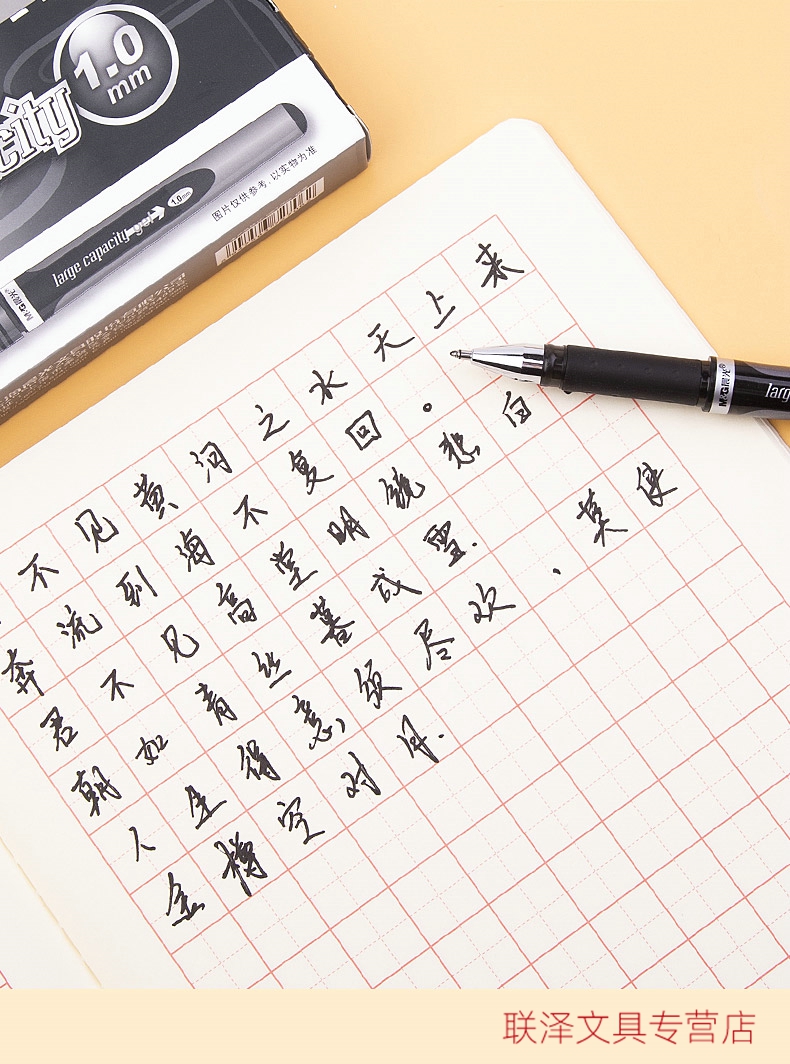 city
1.0
mm
1.0mm
large capacity gel
M&G晨光
图片仅供参考,以实物为准
不见黄河之水天上来
奔流到海不复回。
君不见高堂明镜悲白
朝如青丝暮成雪.
人生得意须尽欢.莫使
金樽空对月.
M&G晨光
larg
联泽文具专营店